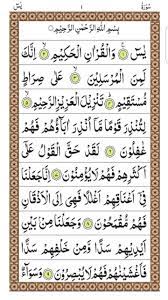 يٰسٓ ١ سُوْرَةُ
بِسْمِ اللهِ الرَّحْمٰنِ الرَّحِيْمِ
يٰسٓ ۚ وَالْقُرْاٰنِ الْحَكِيْمِ ۙ اِنَّكَ
لَمِنَ الْمُرْسَلِيْنَ ۙ عَلٰى صِرَاطٍ
مُّسْتَقِيْمٍ ؕ تَنْزِيْلَ الْعَزِيْزِ الرَّحِيْمِ ۙ
لِتُنْذِرَ قَوْمًا مَّاۤ اُنْذِرَ اٰبَآؤُهُمْ فَهُمْ
غٰفِلُوْنَ لَقَدْ حَقَّ الْقَوْلُ عَلٰۤى
اَكْثَرِهِمْ فَهُمْ لَا يُؤْمِنُوْنَ اِنَّا جَعَلْنَا
فِيْۤ اَعْنَاقِهِمْ اَغْلٰلًا فَهِيَ اِلَى الْاَذْقَانِ
فَهُمْ مُّقْمَحُوْنَ وَجَعَلْنَا مِنْۢ بَيْنِ
اَيْدِيْهِمْ سَدًّا وَّمِنْ خَلْفِهِمْ سَدًّا
فَاَغْشَيْنٰهُمْ فَهُمْ لَا يُبْصِرُوْنَ وَسَوَآءٌ